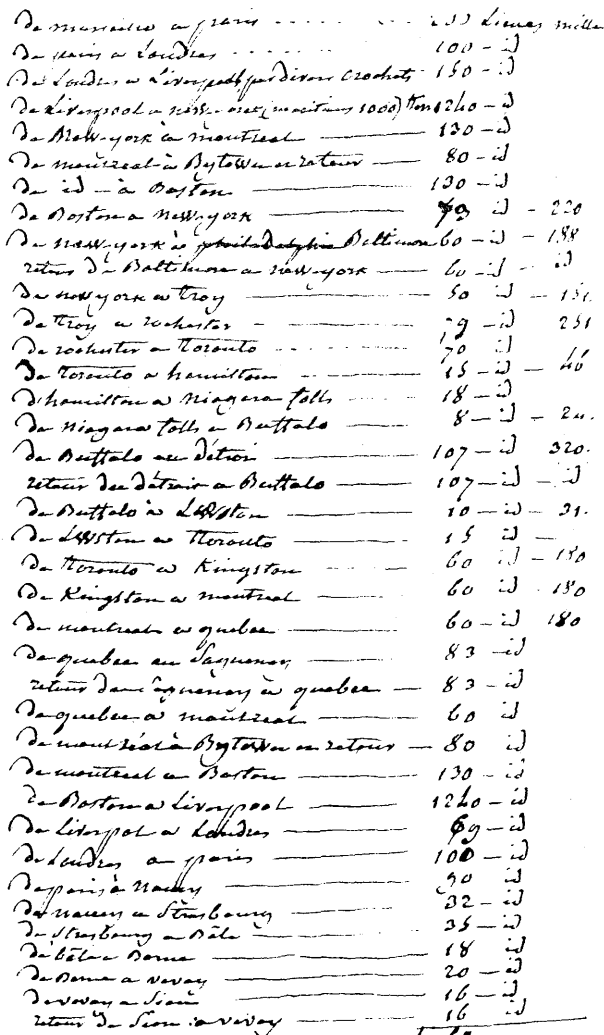 De marseille a paris - - - - - lieues mille
De paris a Londres - - - - - 100 - id
De Londres a Liverpool par divers crochets 150 - id
De Liverpool a new-york (maritimes 1000) 1240 - id
De New-york à montreal — 130 - id
De montreal à Bytown en retour — 80 - id
De id - à Boston — 130 - id
De Boston a new-york — 79 id - 220
De new-york à philadelphie Baltimore 60 - id - 188
retour De Baltimore a new-york — 60 - id - id
De new york a troy — 50 id - 151
De troy a rochester - — 79 - id 251
De rochester a toronto - - - - 70 id
De toronto a hamilton — 15 - id - 46
D'hamilton a niagara falls — 18 - id
De niagara falls a Buffalo — 8 - id - 24.
De Buffalo au détroi — 107 - id 320.
retour du détroi a Buffalo — 107 - id - id
De Buffalo à LeWston — 10 - id - 31.
De LeWston a toronto — 15 id -
De toronto a Kingston — 60 id - 180
De Kingston a montreal — 60 id 180
De montreal a quebec — 60 - id 180
De quebec au Saguenay — 83 - id
retour de Saguenay à quebec — 83 - id
De quebec à montreal — 60 id
De montréal à Bytown en retour — 80 id
De montreal a Boston — 130 - id
De Boston a Liverpool — 1240 - id
De Liverpol a Londres — 69 - id
De Londres a paris — 100 - id
De paris à nancy — 90 id
De nancy a Strasbourg — 32 - id
De Strasbourg a Bâle — 35 - id
De bâle a Berne — 18 id
De Berne a vevay — 20 - id
De vevay a Sion — 16 - id
retour de Sion a vevay — 16 id